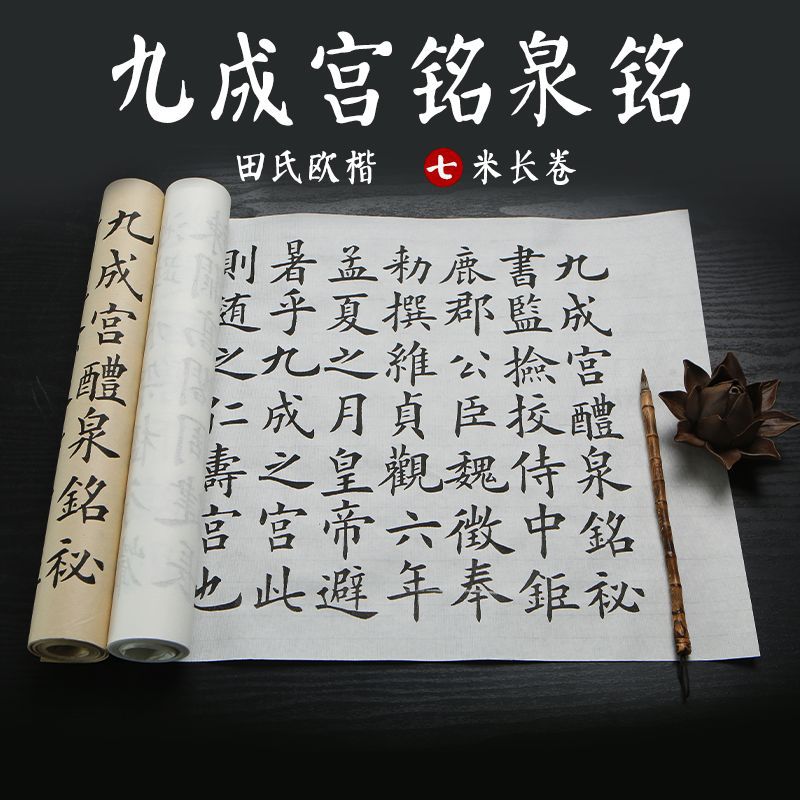 九成宫铭泉铭
田氏欧楷 七米长卷
九成宫醴泉銘祕
九成宫醴泉銘祕
書監撿挍侍中鉅
鹿郡公臣魏徴奉
勑撰維貞觀六年
孟夏之月皇帝避
暑乎九成之宫此
則随之仁壽宫也